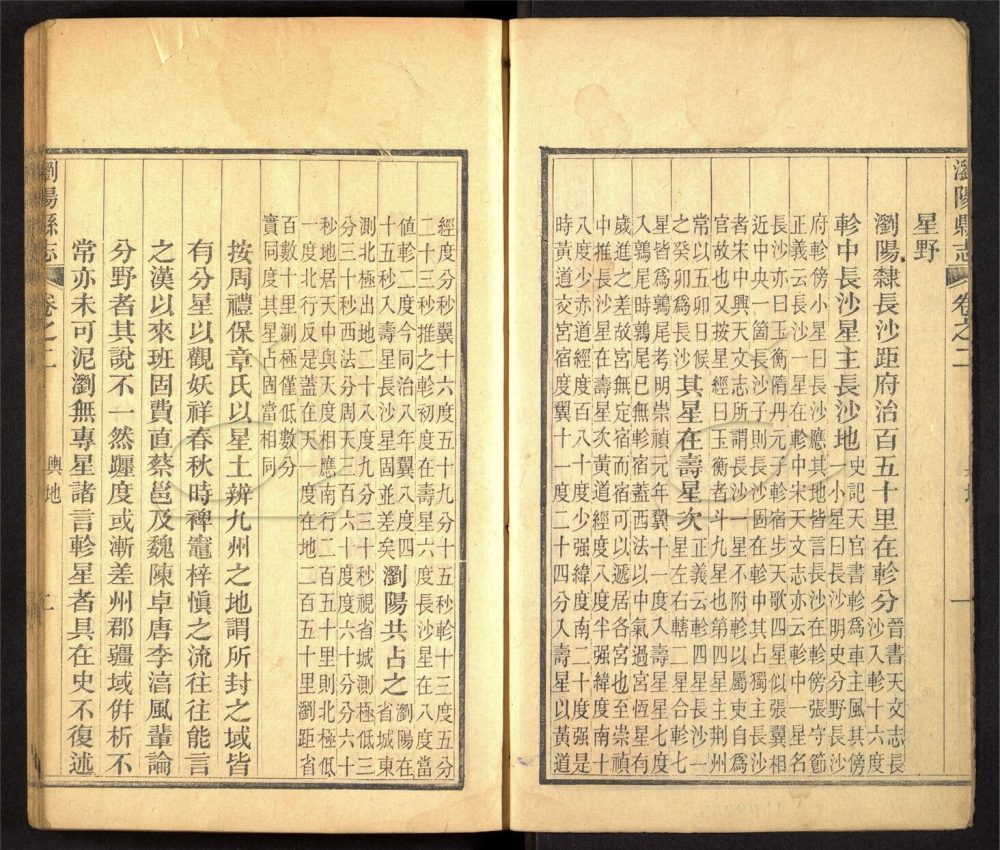 瀏陽縣志 卷之二 一
星野
瀏陽隸長沙距府治百五十里在軫分晉書天文志長沙入軫十六度
軫中長沙星主長沙地史記天官書軫爲車主風其傍一小星曰長沙明史分野長沙
府軫傍小星曰長沙應其地皆言長沙在軫傍張守節
正義云長沙一星在軫中宋天文志亦云軫中一星名
長沙亦曰玉衡隋丹元子軫宿步天歌四星似張翼相
近中央一箇長沙子則長沙固在軫中其占獨主長沙
者宋中興天文志所謂長沙一星不附軫以屬吏自爲
官故也又按星經曰玉衡者斗九星也第四星主荆州
常以五卯日候之癸卯爲長沙其星在壽星次正義云軫四星長沙一星左右轄二星合軫七
星皆爲鶉尾考明崇禎元年翼十一度入星七度
入鶉尾時鶉尾已無軫宿蓋西法以中氣過宮恆星有
歲進之差故宮無定宿而宿可以遞居各宮也至崇禎
中推長沙星在壽星次黃道經度八度半强緯度南十
八度少赤道經度百八十一度少强緯度南二十度强是
時黃道交宮宿度翼十一度二十四分入壽星以黃道
經度分秒翼十六度五十九分十五秒軫十三度五分
二十三秒推之軫初度在壽星六度長沙星在八度當
值軫二度今同治八年翼八度四十五秒入壽星長沙星固並差矣瀏陽共占之瀏陽在省城東
測北極出地二十八度九分三十秒視省城測極低三
分三十秒西法分周天三百六十度度六十分分六十
秒地居天中與天度相應南行二百五十里則北極低
一度北行反是蓋在天一度在地二百五十里瀏距省
百數十里測極僅低數分
實同度其星占固當相同
按周禮保章氏以星土辨九州之地謂所封之域皆
有分星以觀妖祥春秋時裨竈梓愼之流往往能言
之漢以來班固費直蔡邕及魏陳卓唐李淳風輩論
分野者其說不一然躔度或漸差州郡疆域倂析不
常亦未可泥瀏無專星諸言軫星者具在史不復述
瀏陽縣志 卷之二 輿地 二